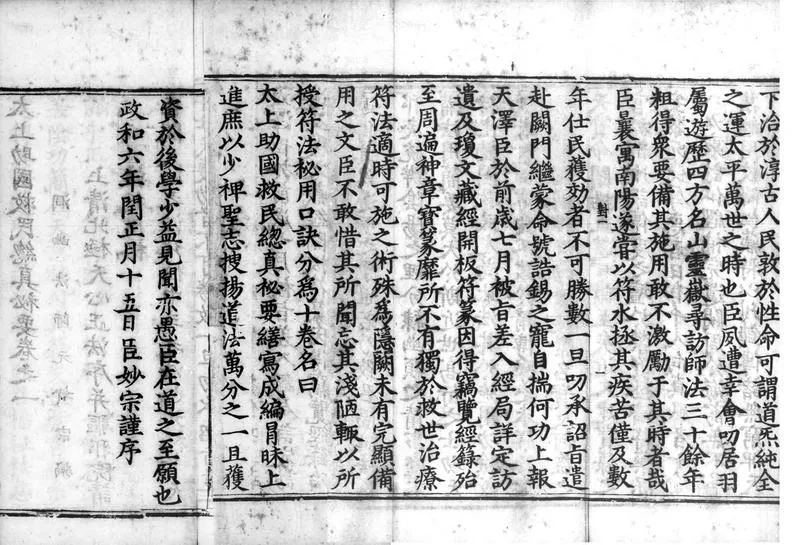 下洽於淳古人民敦於性命可謂道炁純全
之運太平萬世之時也臣夙遭幸會叨居羽
屬遊歷四方名山靈嶽尋訪師法三十餘年
粗得眾要備其施用敢不激勵于其時者哉
臣曩寓南陽遂嘗以符水拯其疾苦僅及數
對
年仕民獲効者不可勝數一旦叨承詔旨遣
赴闕門繼蒙命號誥錫之寵自揣何功上報
天澤臣於前歲七月被旨差入經局詳定訪
遺及瓊文藏經開板符篆因得竊覽經籙殆
至周遍神章寳篆靡所不有獨於救世治療
符法適時可施之術殊爲隱闕未有完顯備
用之文臣不敢惜其所聞忘其淺陋輙以所
授符法秘用口訣分爲十卷名曰
太上助國救民總真秘要繕寫成編冒昧上
進庶以少裨聖志搜揚道法萬分之一且獲
資於後學少益見聞亦愚臣在道之至願也
政和六年閏正月十五日臣妙宗謹序
太上助國救民總真秘要卷之一